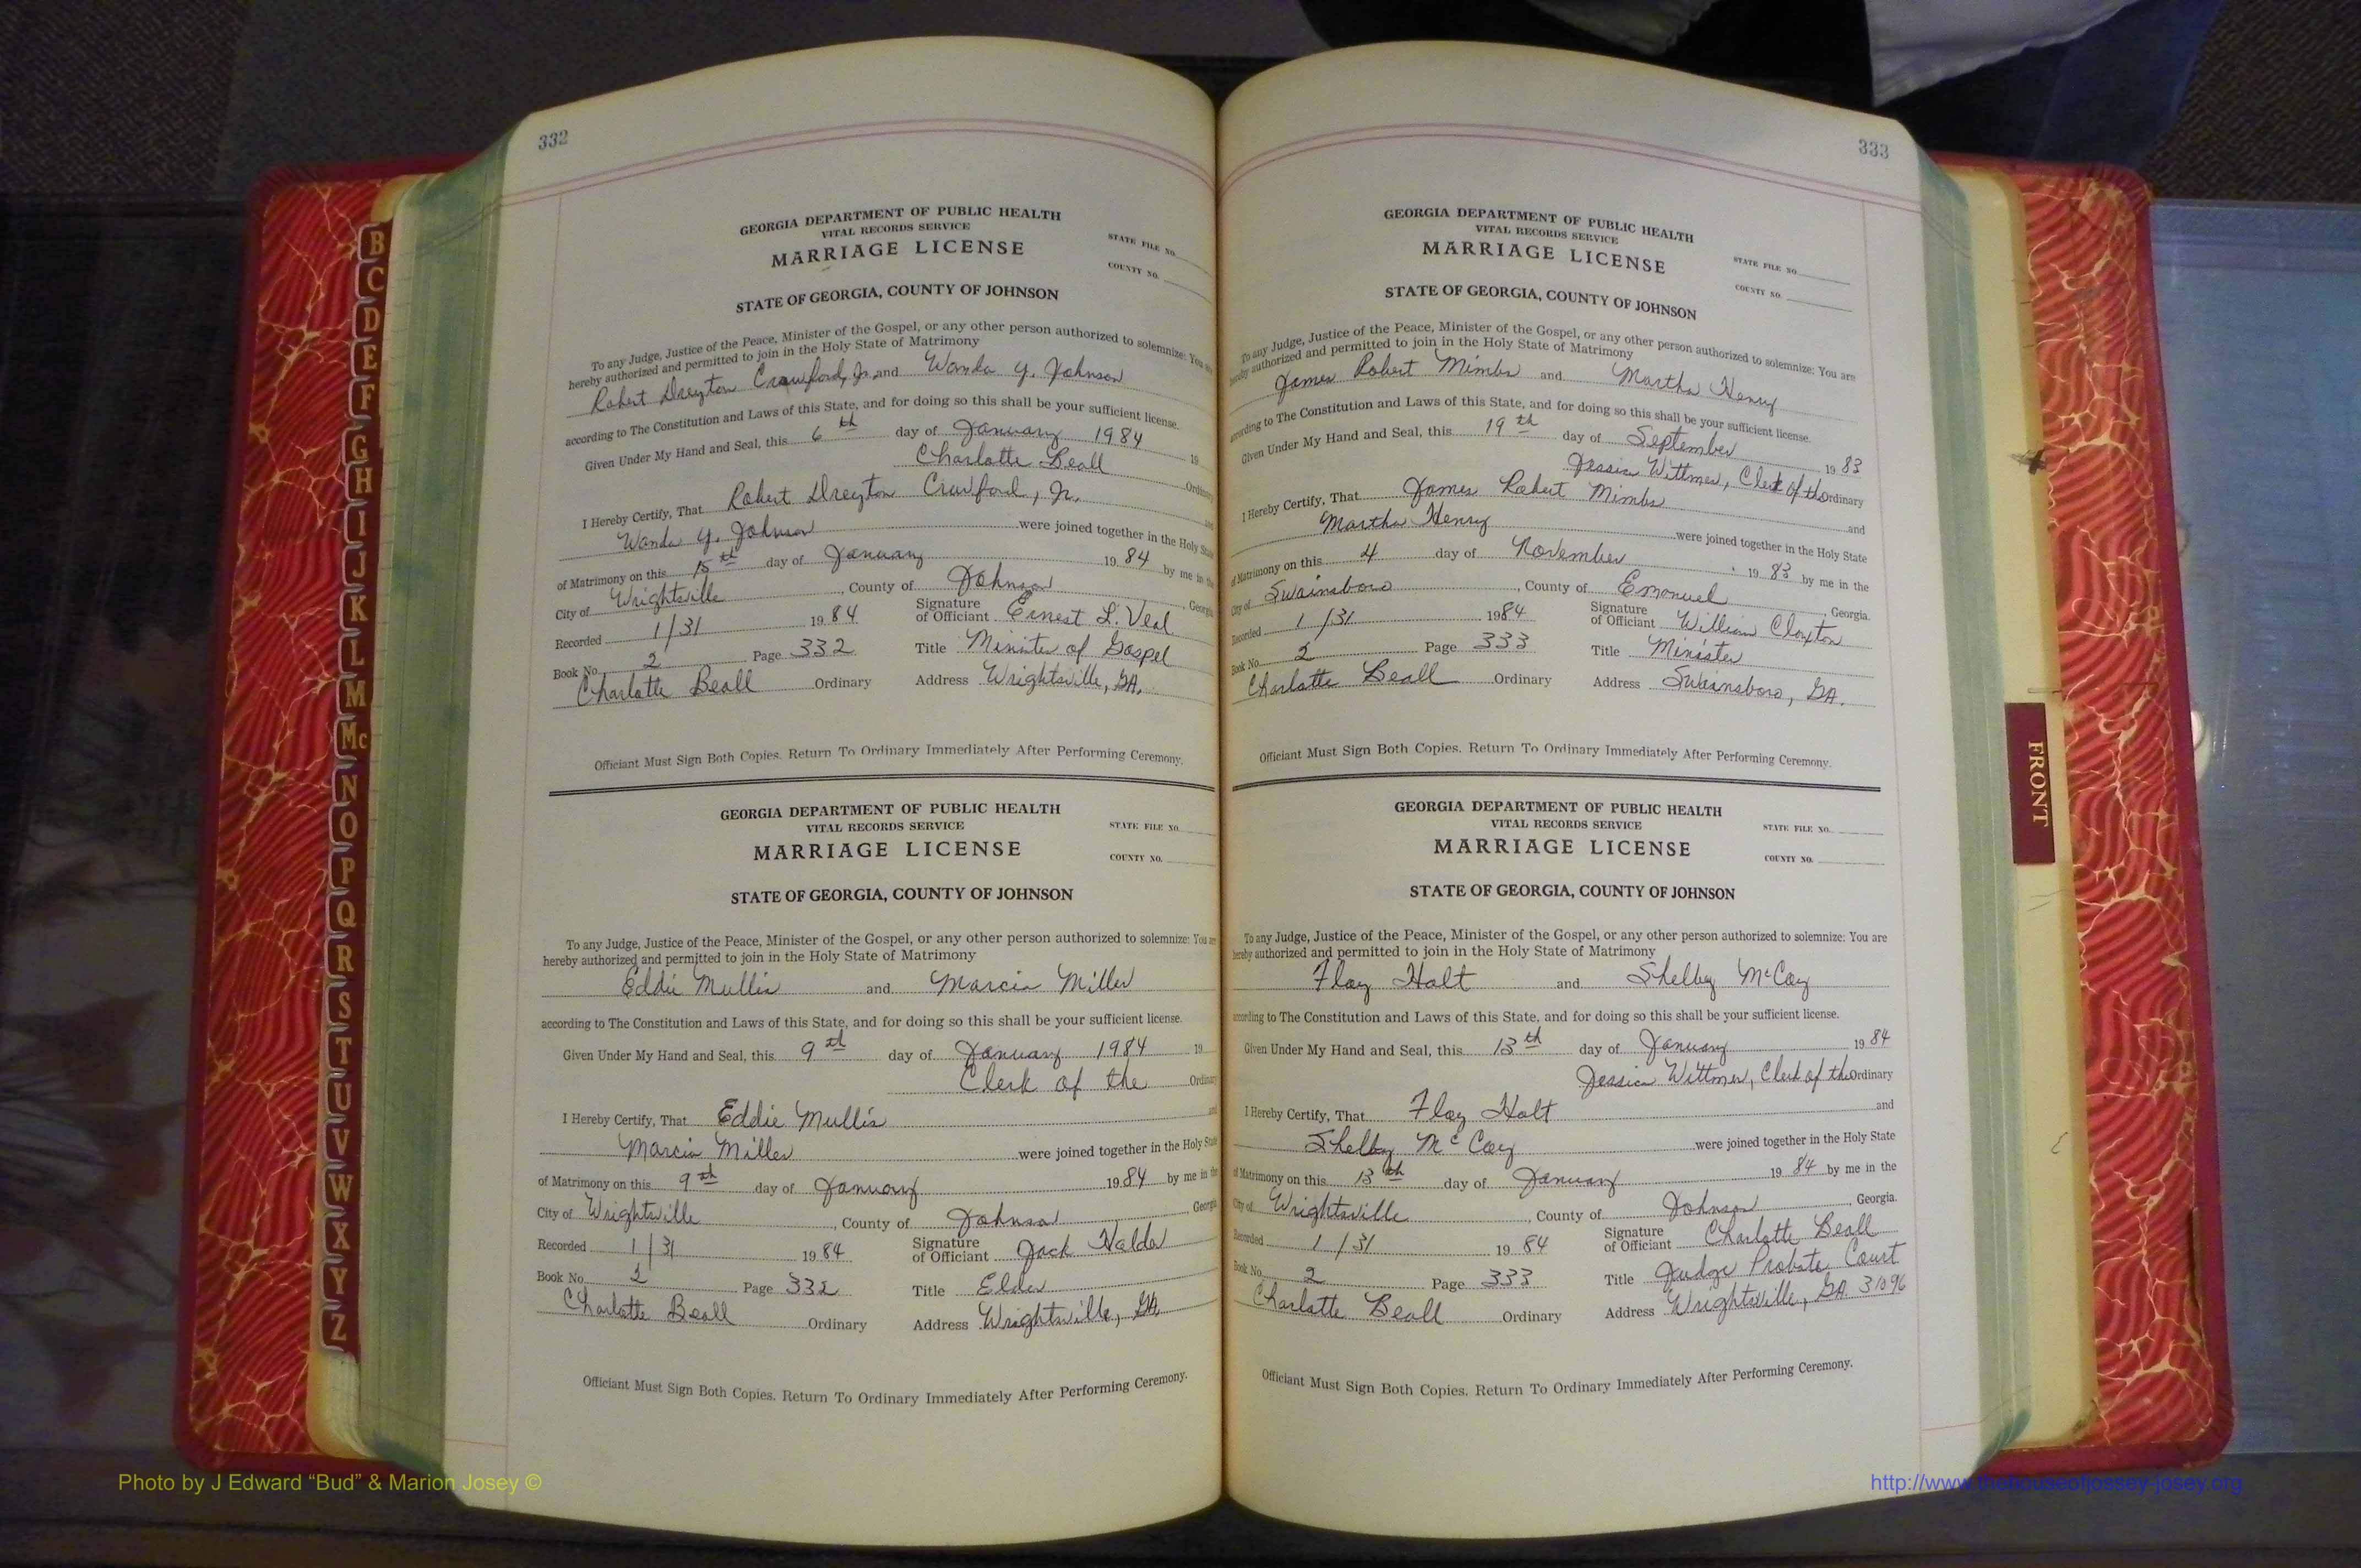 332
GEORGIA DEPARTMENT OF PUBLIC HEALTH
VITAL RECORDS SERVICE
MARRIAGE LICENSE
STATE FILE NO.
COUNTY NO.
STATE OF GEORGIA, COUNTY OF JOHNSON
To any Judge, Justice of the Peace, Minister of the Gospel, or any other person authorized to solemnize: You are
hereby authorized and permitted to join in the Holy State of Matrimony
Robert Dreyton Crawford, Jr. and Wanda Y. Johnson
according to The Constitution and Laws of this State, and for doing so this shall be your sufficient license.
Given Under My Hand and Seal, this 6th day of January 1984 19
Charlotte Beall Ordinary
I Hereby Certify, That Robert Dreyton Crawford, Jr. and
Wanda Y. Johnson were joined together in the Holy State
of Matrimony on this 15th day of January 19 84 by me in the
City of Wrightsville, County of Johnson, Georgia
Recorded 1/31 19 84 Signature of Officiant Ernest L. Veal
Book No. 2 Page 332 Title Minister of Gospel
Charlotte Beall Ordinary Address Wrightsville, GA.
Officiant Must Sign Both Copies. Return To Ordinary Immediately After Performing Ceremony.
GEORGIA DEPARTMENT OF PUBLIC HEALTH
VITAL RECORDS SERVICE
MARRIAGE LICENSE
STATE FILE NO.
COUNTY NO.
STATE OF GEORGIA, COUNTY OF JOHNSON
To any Judge, Justice of the Peace, Minister of the Gospel, or any other person authorized to solemnize: You are
hereby authorized and permitted to join in the Holy State of Matrimony
Eddie Mullis and Marcia Miller
according to The Constitution and Laws of this State, and for doing so this shall be your sufficient license.
Given Under My Hand and Seal, this 9th day of January 1984 19
Clerk of the Ordinary
I Hereby Certify, That Eddie Mullis and
Marcia Miller were joined together in the Holy State
of Matrimony on this 9th day of January 19 84 by me in the
City of Wrightsville, County of Johnson, Georgia
Recorded 1/31 19 84 Signature of Officiant Jack
Book No. 2 Page 332 Title Elder
Charlotte Beall Ordinary Address Wrightsville, GA.
Officiant Must Sign Both Copies. Return To Ordinary Immediately After Performing Ceremony.
333
GEORGIA DEPARTMENT OF PUBLIC HEALTH
VITAL RECORDS SERVICE
MARRIAGE LICENSE
STATE FILE NO.
COUNTY NO.
STATE OF GEORGIA, COUNTY OF JOHNSON
To any Judge, Justice of the Peace, Minister of the Gospel, or any other person authorized to solemnize: You are
hereby authorized and permitted to join in the Holy State of Matrimony
James Robert Mimbs and Martha Henry
according to The Constitution and Laws of this State, and for doing so this shall be your sufficient license.
Given Under My Hand and Seal, this 19th day of September 19 83
Jessica Wittmer, Clerk of the Ordinary
I Hereby Certify, That James Robert Mimbs and
Martha Henry were joined together in the Holy State
of Matrimony on this 4 day of November 19 83 by me in the
City of Swainsboro, County of Emanuel, Georgia.
Recorded 1/31 1984 Signature of Officiant William Claxton
Book No. 2 Page 333 Title Minister
Charlotte Beall Ordinary Address Swainsboro, GA.
Officiant Must Sign Both Copies. Return To Ordinary Immediately After Performing Ceremony.
GEORGIA DEPARTMENT OF PUBLIC HEALTH
VITAL RECORDS SERVICE
MARRIAGE LICENSE
STATE FILE NO.
COUNTY NO.
STATE OF GEORGIA, COUNTY OF JOHNSON
To any Judge, Justice of the Peace, Minister of the Gospel, or any other person authorized to solemnize: You are
hereby authorized and permitted to join in the Holy State of Matrimony
Floy Holt and Shelby McCoy
according to The Constitution and Laws of this State, and for doing so this shall be your sufficient license.
Given Under My Hand and Seal, this 13th day of January 19 84
Jessica Wittmer, Clerk of the Ordinary
I Hereby Certify, That Floy Holt and
Shelby McCoy were joined together in the Holy State
of Matrimony on this 13th day of January 19 84 by me in the
City of Wrightsville, County of Johnson, Georgia.
Recorded 1/31 19 84 Signature of Officiant Charlotte Beall
Book No. 2 Page 333 Title Judge Probate Court
Charlotte Beall Ordinary Address Wrightsville, GA 31096
Officiant Must Sign Both Copies. Return To Ordinary Immediately After Performing Ceremony.
B
C
D
E
F
G
H
I
J
K
L
M
Mc
N
O
P
Q
R
S
T
U
V
W
X
Y
Z
FRONT
Photo by J Edward “Bud” & Marion Josey ©
http://www.thehouseofjossey-josey.org